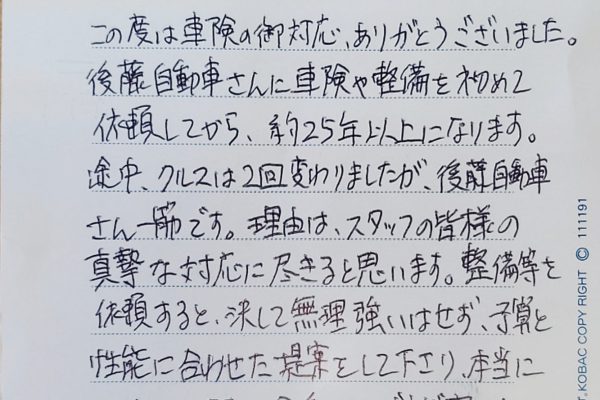 この度は車険の御対応、ありがとうございました。
後藤自動車さんに車険や整備を初めて
依頼してから、約25年以上になります。
途中、クルマは2回変わりましたが、後藤自動車
さん一筋です。理由は、スタッフの皆様の
真摯な対応に尽きると思います。整備等を
依頼すると、決して無理強いはせず、予算と
性能に合わせた提案をして下さり、本当に
KOBAC COPY RIGHT © 111191